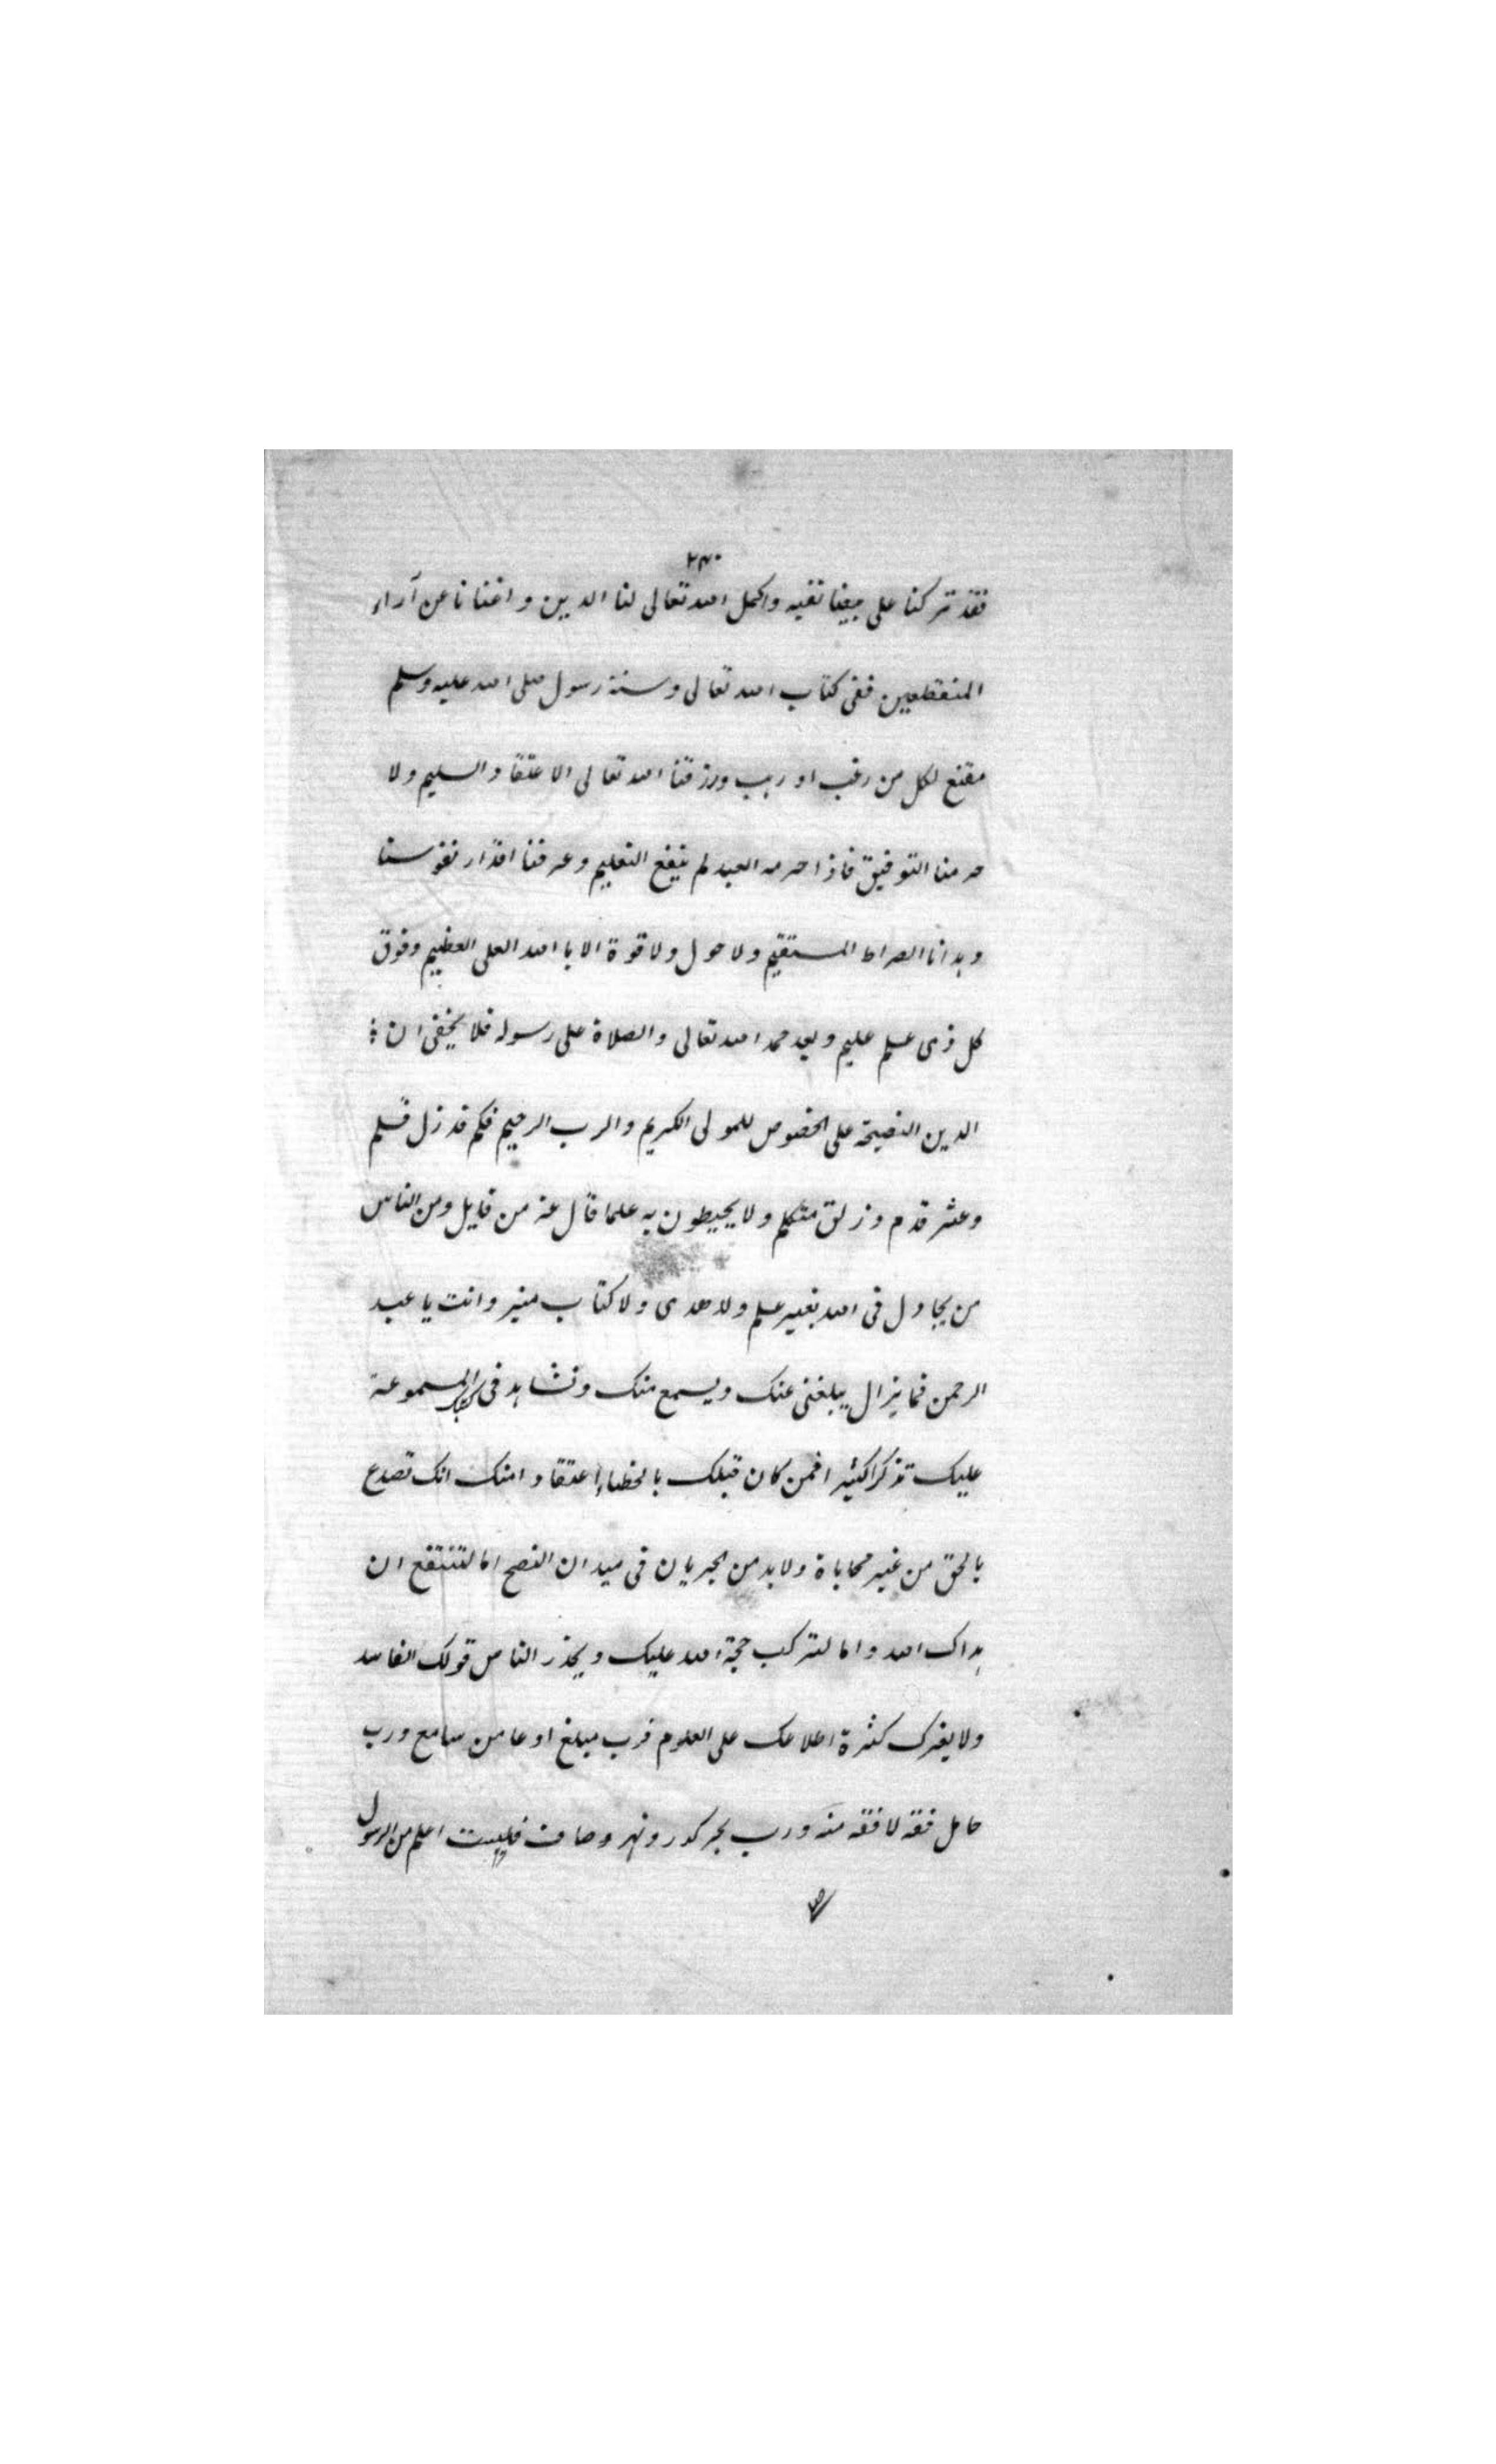 ٢٣٠
فقد تركنا على بيضا نقيه واكمل الله تعالى لنا الدين واغنانا عن آراء
المنقطعين ففى كتاب الله تعالى وسنة رسول صلى الله عليه وسلم
مقنع لكل من رغب او رهب ورزقنا الله تعالى الاعتقاد السليم ولا
حرمنا التوفيق فاذا حرمه العبد لم ينفع التعليم وعرفنا اقدار نفوسنا
وهدانا الصراط المستقيم ولا حول ولا قوة الا باالله العلى العظيم وفوق
كل ذى علم عليم وبعد حمد الله تعالى والصلاة على رسوله فلا يخفى ان
الدين النصيحة على الخصوص للمولى الكريم والرب الرحيم فكم قد زل قلم
وعثر قدم وزلق متكلم ولا يحيطون به علما قال عز من قايل ومن الناس
من يجادل فى الله بغير علم ولا هدى ولا كتاب منير وانت يا عبد
الرحمن فما يزال يبلغنى عنك ويسمع منك ونشاهد فى كتبك المسموعة
عليك تذكراكثير افمن كان قبلك بالخطاء اعتقاد امنك انك تصدع
بالحق من غير محاباة ولا بد من الجريان فى ميدان النصح اما لتنتفع ان
هداك الله واما لتركب حجة الله عليك ويحذر الناس قولك الفاسد
ولا يغرك كثرة اطلاعك على العلوم فرب مبلغ اوعا من سامع ورب
حامل فقه لا فقه منه ورب بحر كدر ونهر وصاف فليست اعلم من الرسول